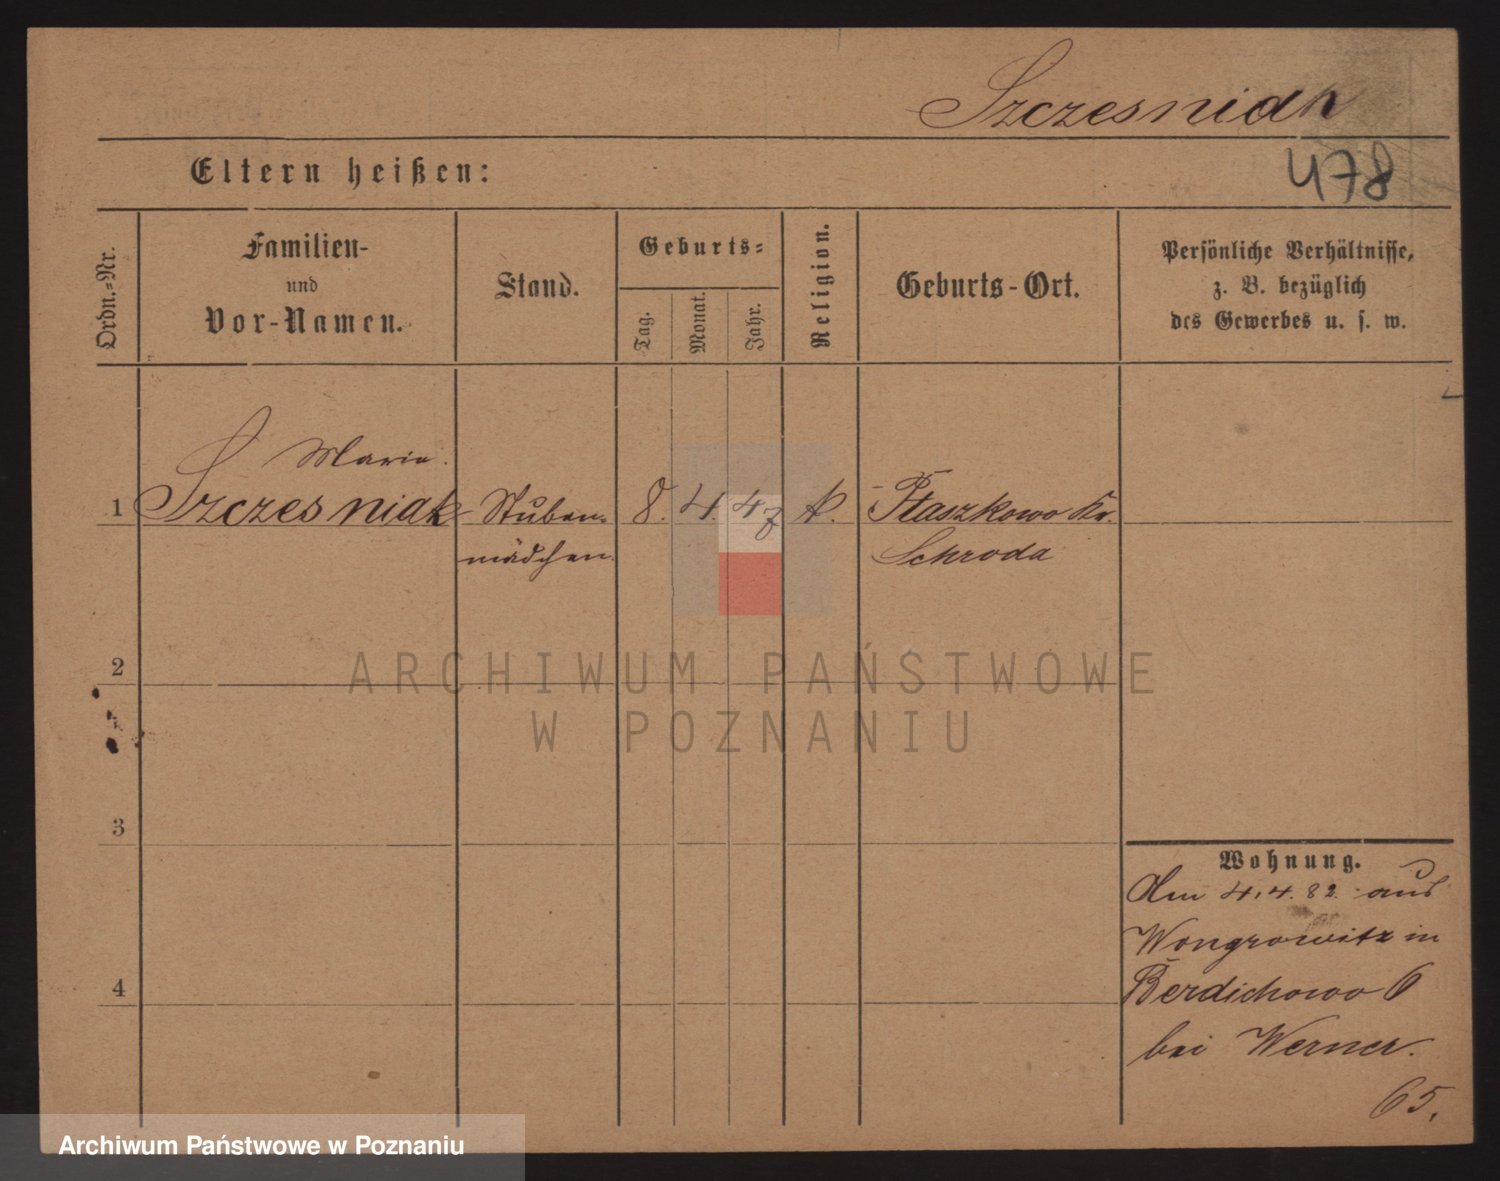 Szczesniak
Eltern heißen:
478
Ordn.=Nr.
Familien-
und
Vor-Namen.
Stand.
Geburts=
Tag.
Monat.
Jahr.
Religion.
Geburts-Ort.
Persönliche Verhältnisse,
z. B. bezüglich
des Gewerbes u. s. w.
Maria.
1 Szczesniak Stuben- 8. 4. 47 k. Ptaszkowo Kr.
mädchen. Schroda
2
ARCHIWUM PAŃSTWOWE
W POZNANIU
3
Wohnung.
Am 4.4.82. aus
Wongrowitz in
4
Berdichowo 6
bei Werner.
65.
Archiwum Państwowe w Poznaniu